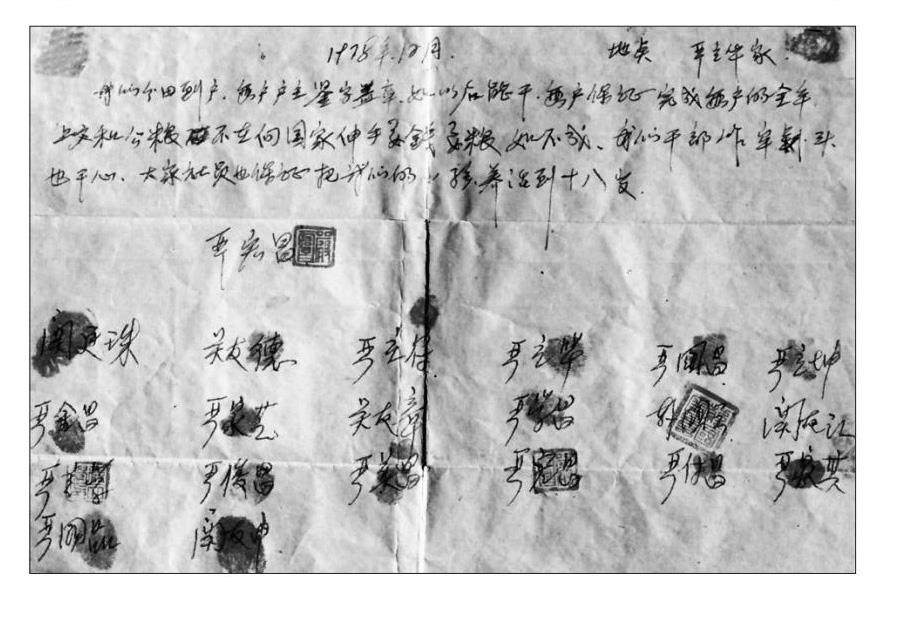 1978年12月. 地点 严立华家.
我们分田到户.每户户主签字盖章.如以后能干.每户保证完成每户的全年
上交和公粮不在向国家伸手要钱要粮如不成、我们干部作牢刹头
也干心、大家社员也保证把我们的小孩养活到十八岁.
严宏昌
关廷珠 关友德 严立符 严立华 严国昌 严立坤
严金昌 严家芝 关友章 严学昌 韩国云 关友江
严立学 严俊昌 严美昌 严宏昌 严付昌 严家其
严国品 关友申